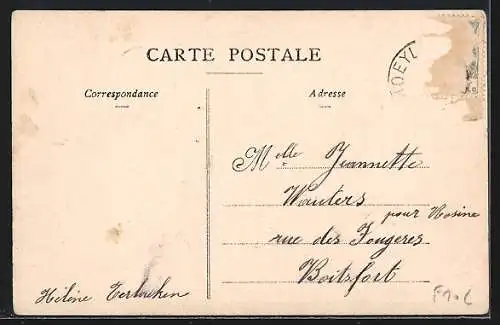 CARTE POSTALE
Correspondance
Adresse
Melle Jeannette
Wauters
pour Hosine
rue des Fougeres
Boitsfort
Hélène